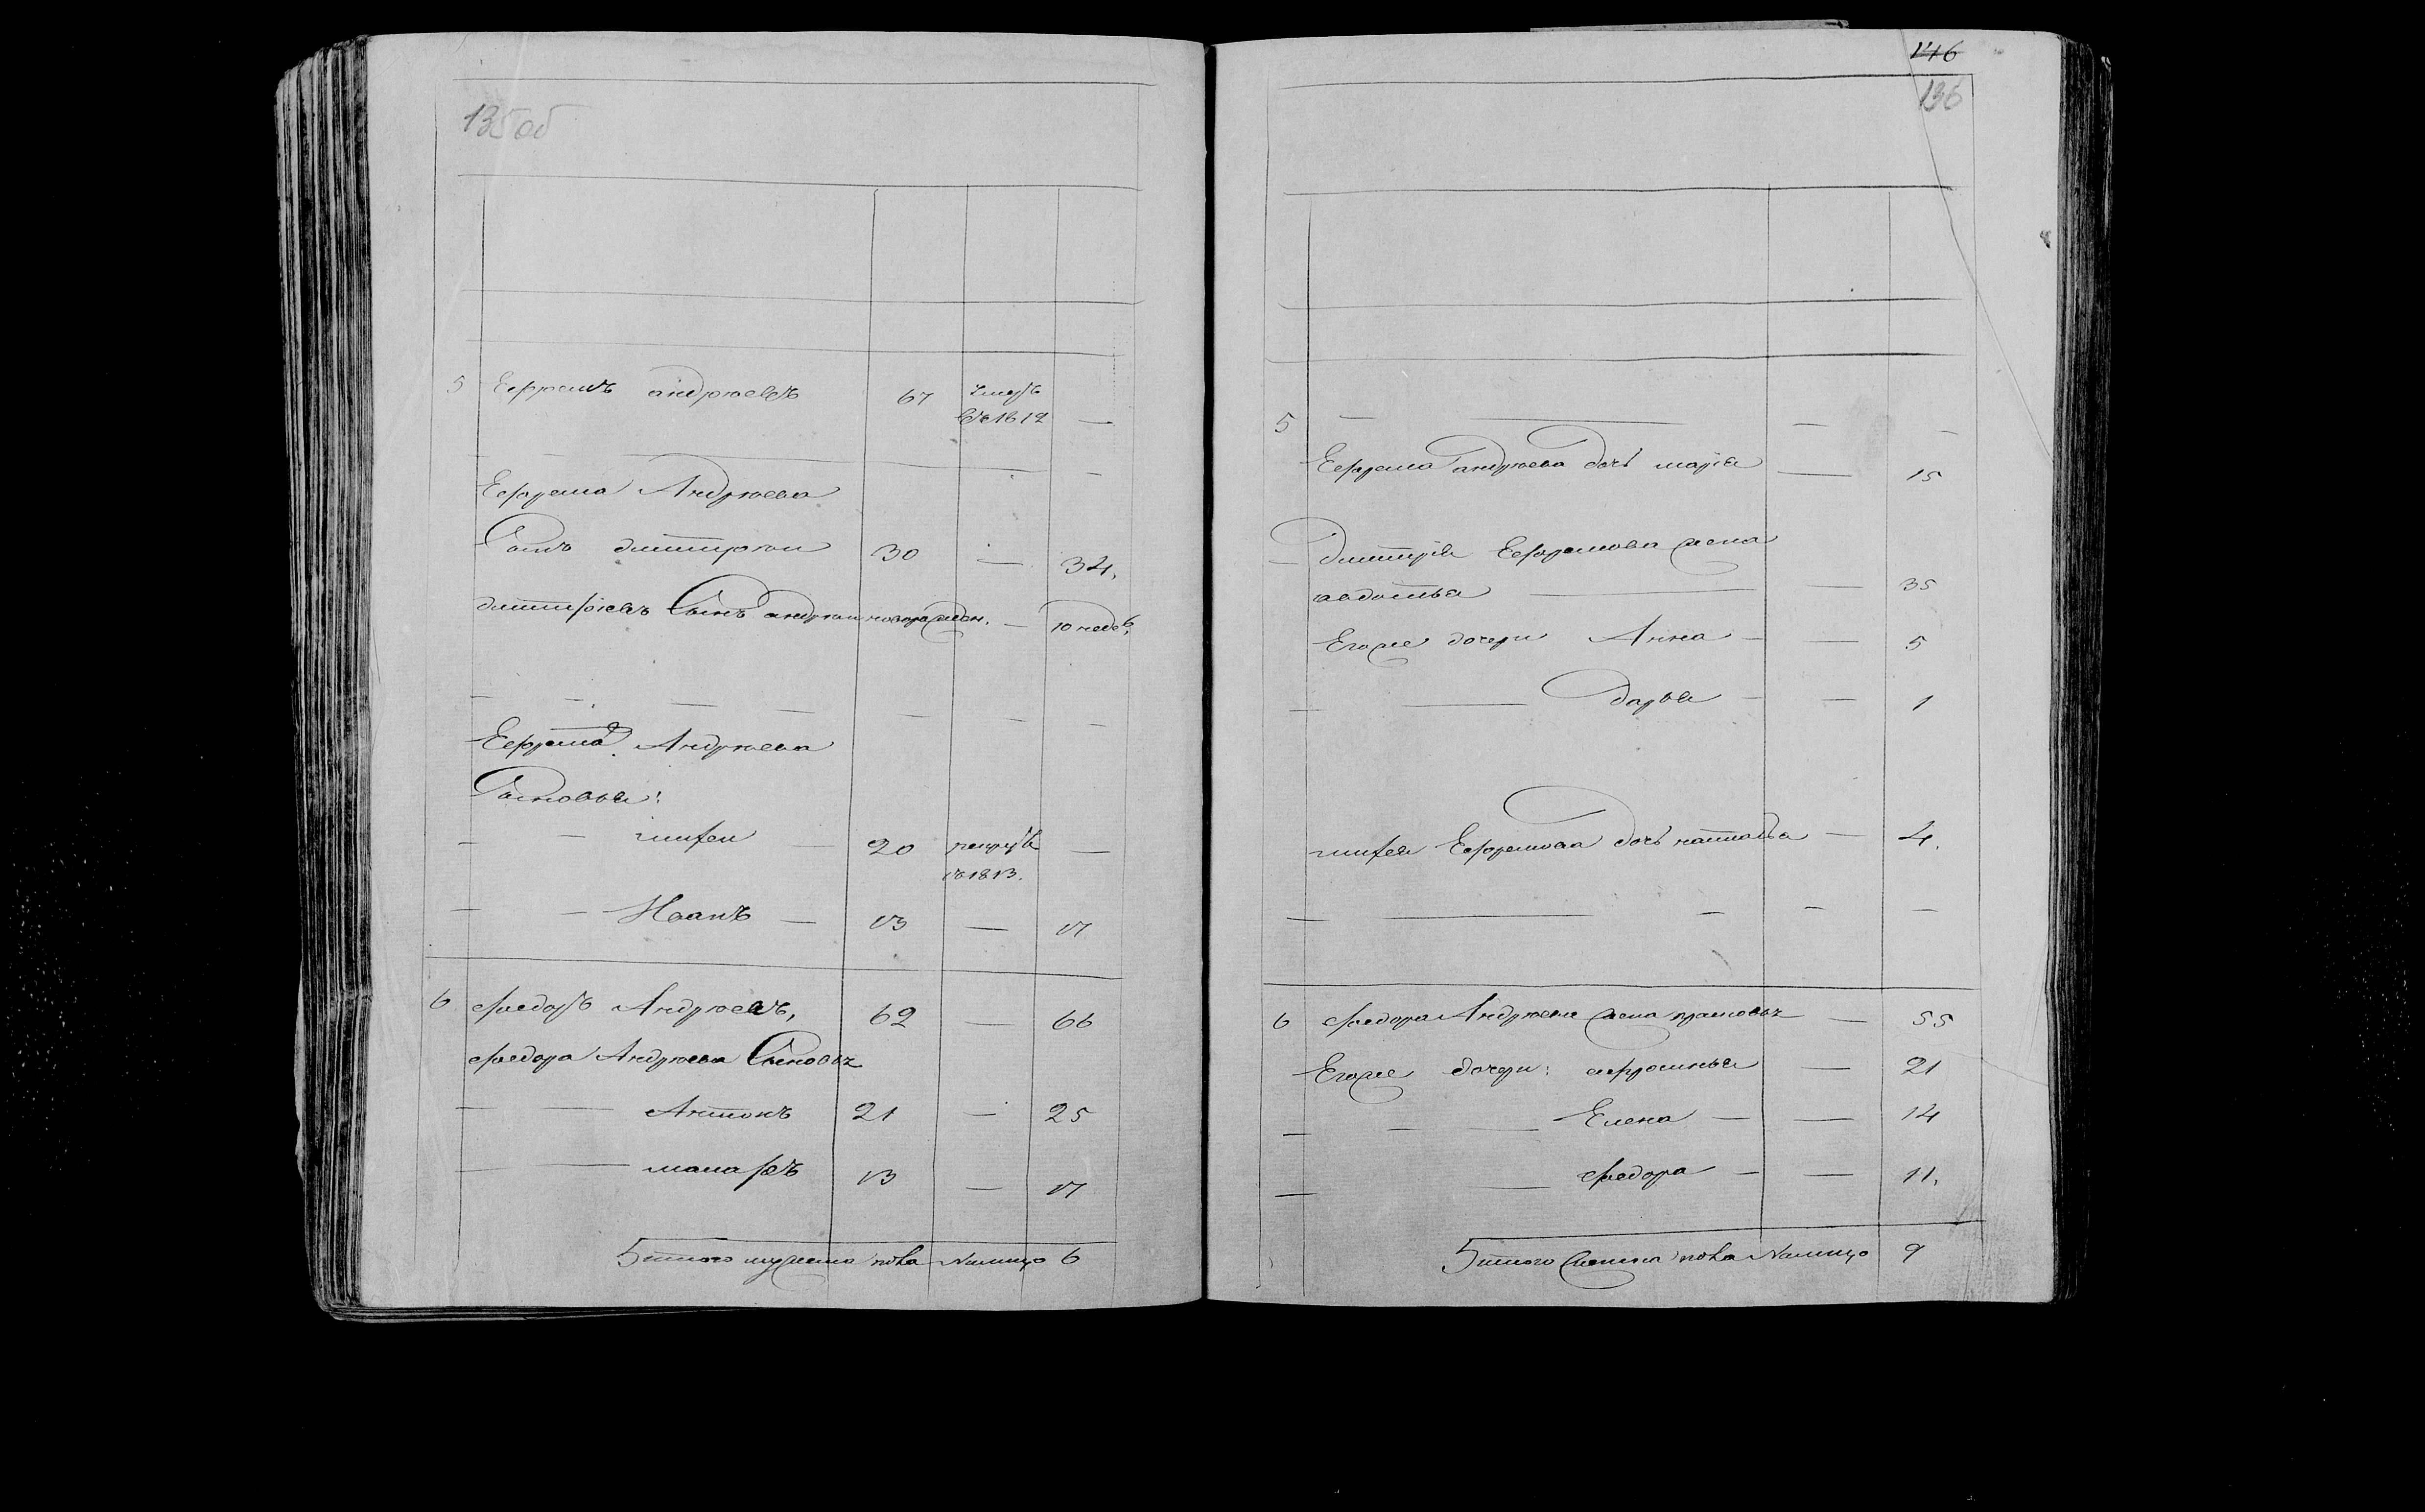 135об
5 Ефремъ андреевъ 67 умеръ
въ 1812 —
Ефрема Андреева
Сынъ дмитреи 30 — 34.
дмитріевъ Сынъ андреи новорожден. — 10 недел.
Ефрема Андреева
Сыновья:
тимофеи — 20 рекрутъ —
въ 1813.
Иванъ — 13 — 17
6 федоръ Андреевъ, 62 — 66
федора Андреева Сыновья
Антонъ 21 — 25
макаръ 13 — 17
Итого мужеска пола на лицо 6
146
136
5 — — — —
Ефрема андреева дочь марья — 15
Дмитрія Ефремова жена
авдотья — — 35
Его же дочери Анна — — 5
Дарья — — 1
Ефремова дочь наталья — 4.
6 федора Андреева жена — 55
Его же дочери: афросинья — 21
Елена — — 14
федора — — 11.
Итого женска пола на лицо 9